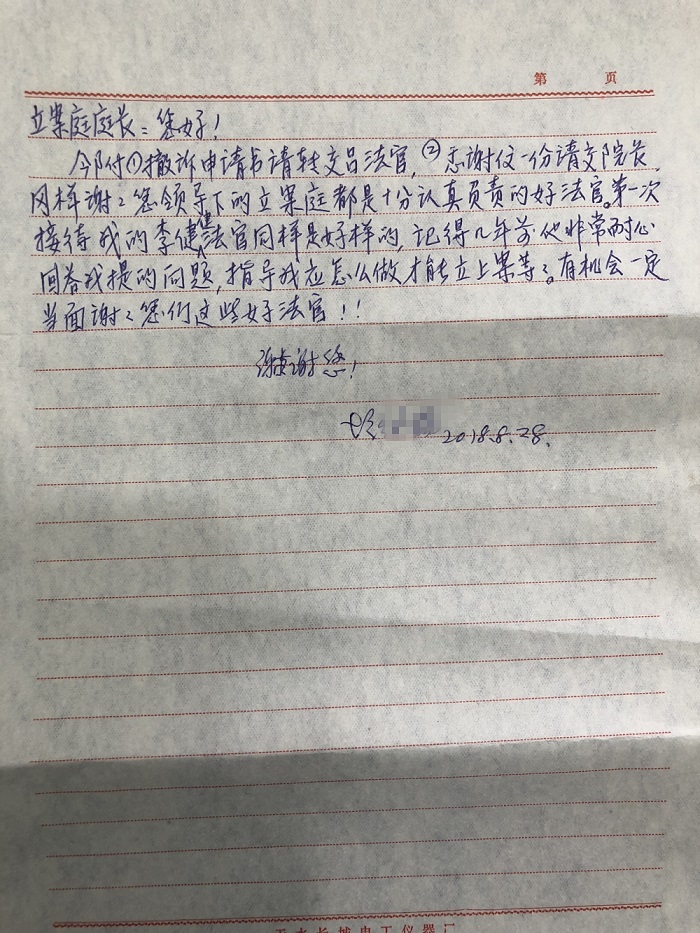 第 页
立案庭庭长：您好！
今附付①撤诉申请书请转交吕法官，②感谢信一份请交院长。
同样谢谢您领导下的立案庭都是十分认真负责的好法官。第一次
接待我的李健健法官同样是好样的，记得几年前他非常耐心
回答我提的问题，指导我应怎么做才能立上案等等。有机会一定
当面谢谢您们这些好法官！！
谢谢您！
2018.8.28.
天水长城电工仪器厂